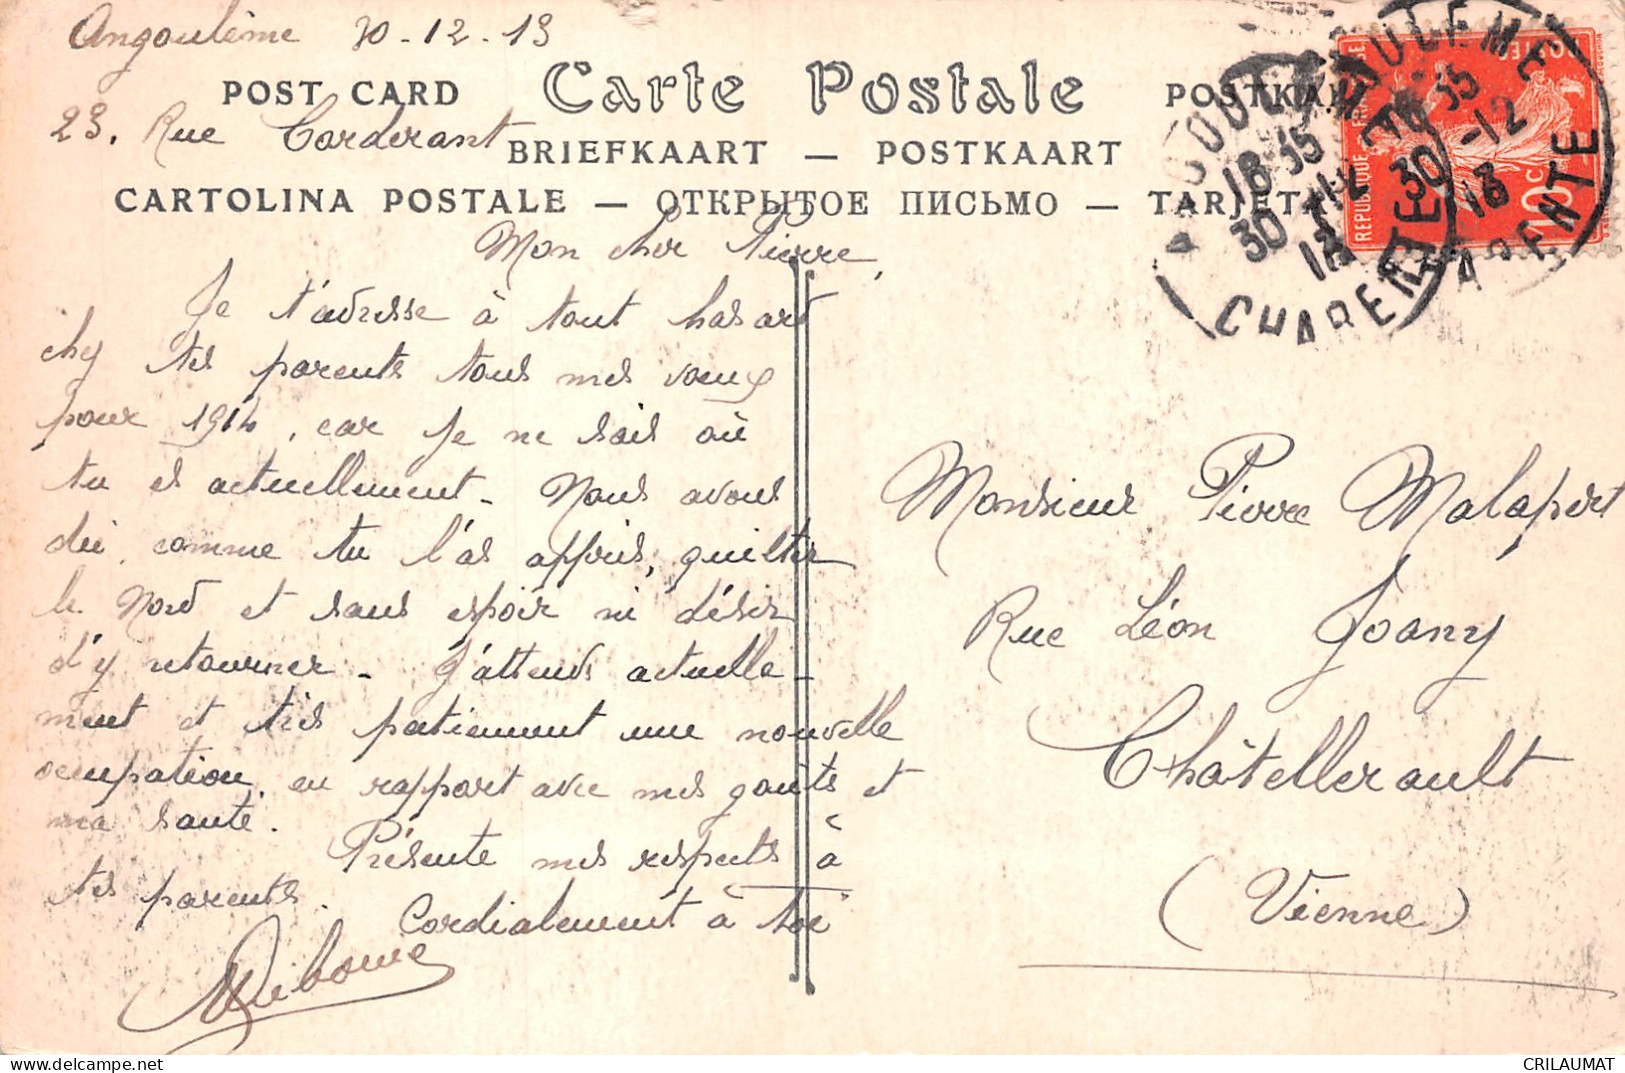 Angoulême 30-12-13
POST CARD Carte Postale POSTKA
23. Rue Corderant
BRIEFKAART — POSTKAART
CARTOLINA POSTALE — ОТКРЫТОЕ ПИСЬМО — TARJETA
ANGOULEME
18·35
30 -12
13
CHARENTE
ANGOULEME
18 35
30 -12
13
CHARENTE
REPUBLIQUE FRANÇAISE
POSTES
10c
Mon cher Pierre,
Je t'adresse à tout hasard
chez tes parents tous mes voeux
pour 1914, car je ne sais où
tu es actuellement - Nous avons
dû, comme tu l'as appris, quitter
le Nord et sans espoir ni désir
d'y retourner - J'attends actuelle-
ment et très patiemment une nouvelle
occupation, en rapport avec mes goûts et
ma santé.
Présente mes respects à
tes parents.
Cordialement à toi
Monsieur Pierre Malapert
Rue Léon Joany
Châtellerault
(Vienne)
CRILAUMAT